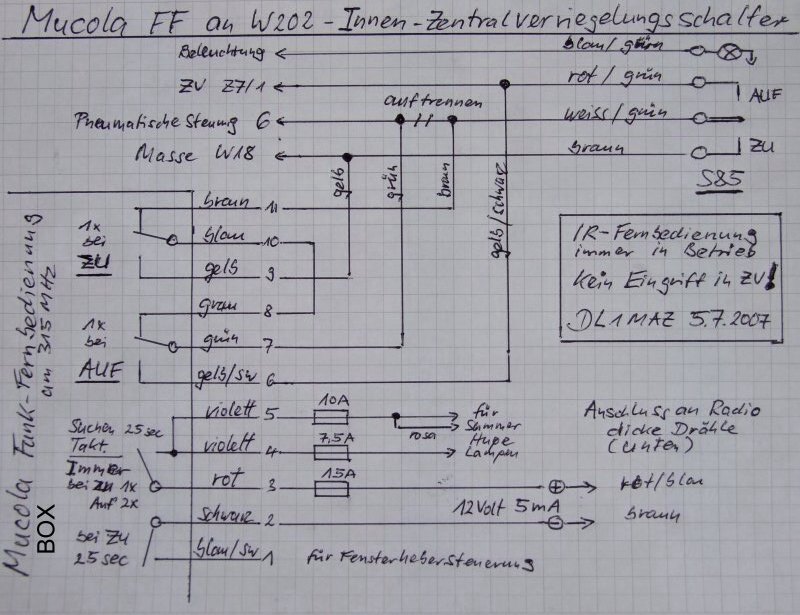 Mucola FF an W202 - Innen-Zentralverriegelungsschalter
Beleuchtung blau/grün
ZV Z7/1 rot/grün
auftrennen AUF
Pneumatische Steuung 6 weiss/grün
Masse W18 braun ZU
S85
gelb
grün
braun
gelb/schwarz
Mucola Funk-Fernbedienung
am 315 MHz
BOX
braun 11
1x
bei
ZU
blau 10
gelb 9
grau 8
1x
bei
AUF
grün 7
gelb/sw 6
IR-Fernbedienung
immer in Betrieb
Kein Eingriff in ZV!
DL1MAZ 5.7.2007
violett 5 10A
rosa
für
Summer
Hupe
Lampen
Suchen 25 sec
Takt.
violett 4 7,5A
Immer
bei zu 1x
Auf 2x
rot 3 15A
Anschluss an Radio
dicke Drähte
(unten)
+ rot/blau
12 Volt 5mA
schwarz 2 - braun
bei ZU
25 sec
blau/sw 1 für Fensterhebersteuerung